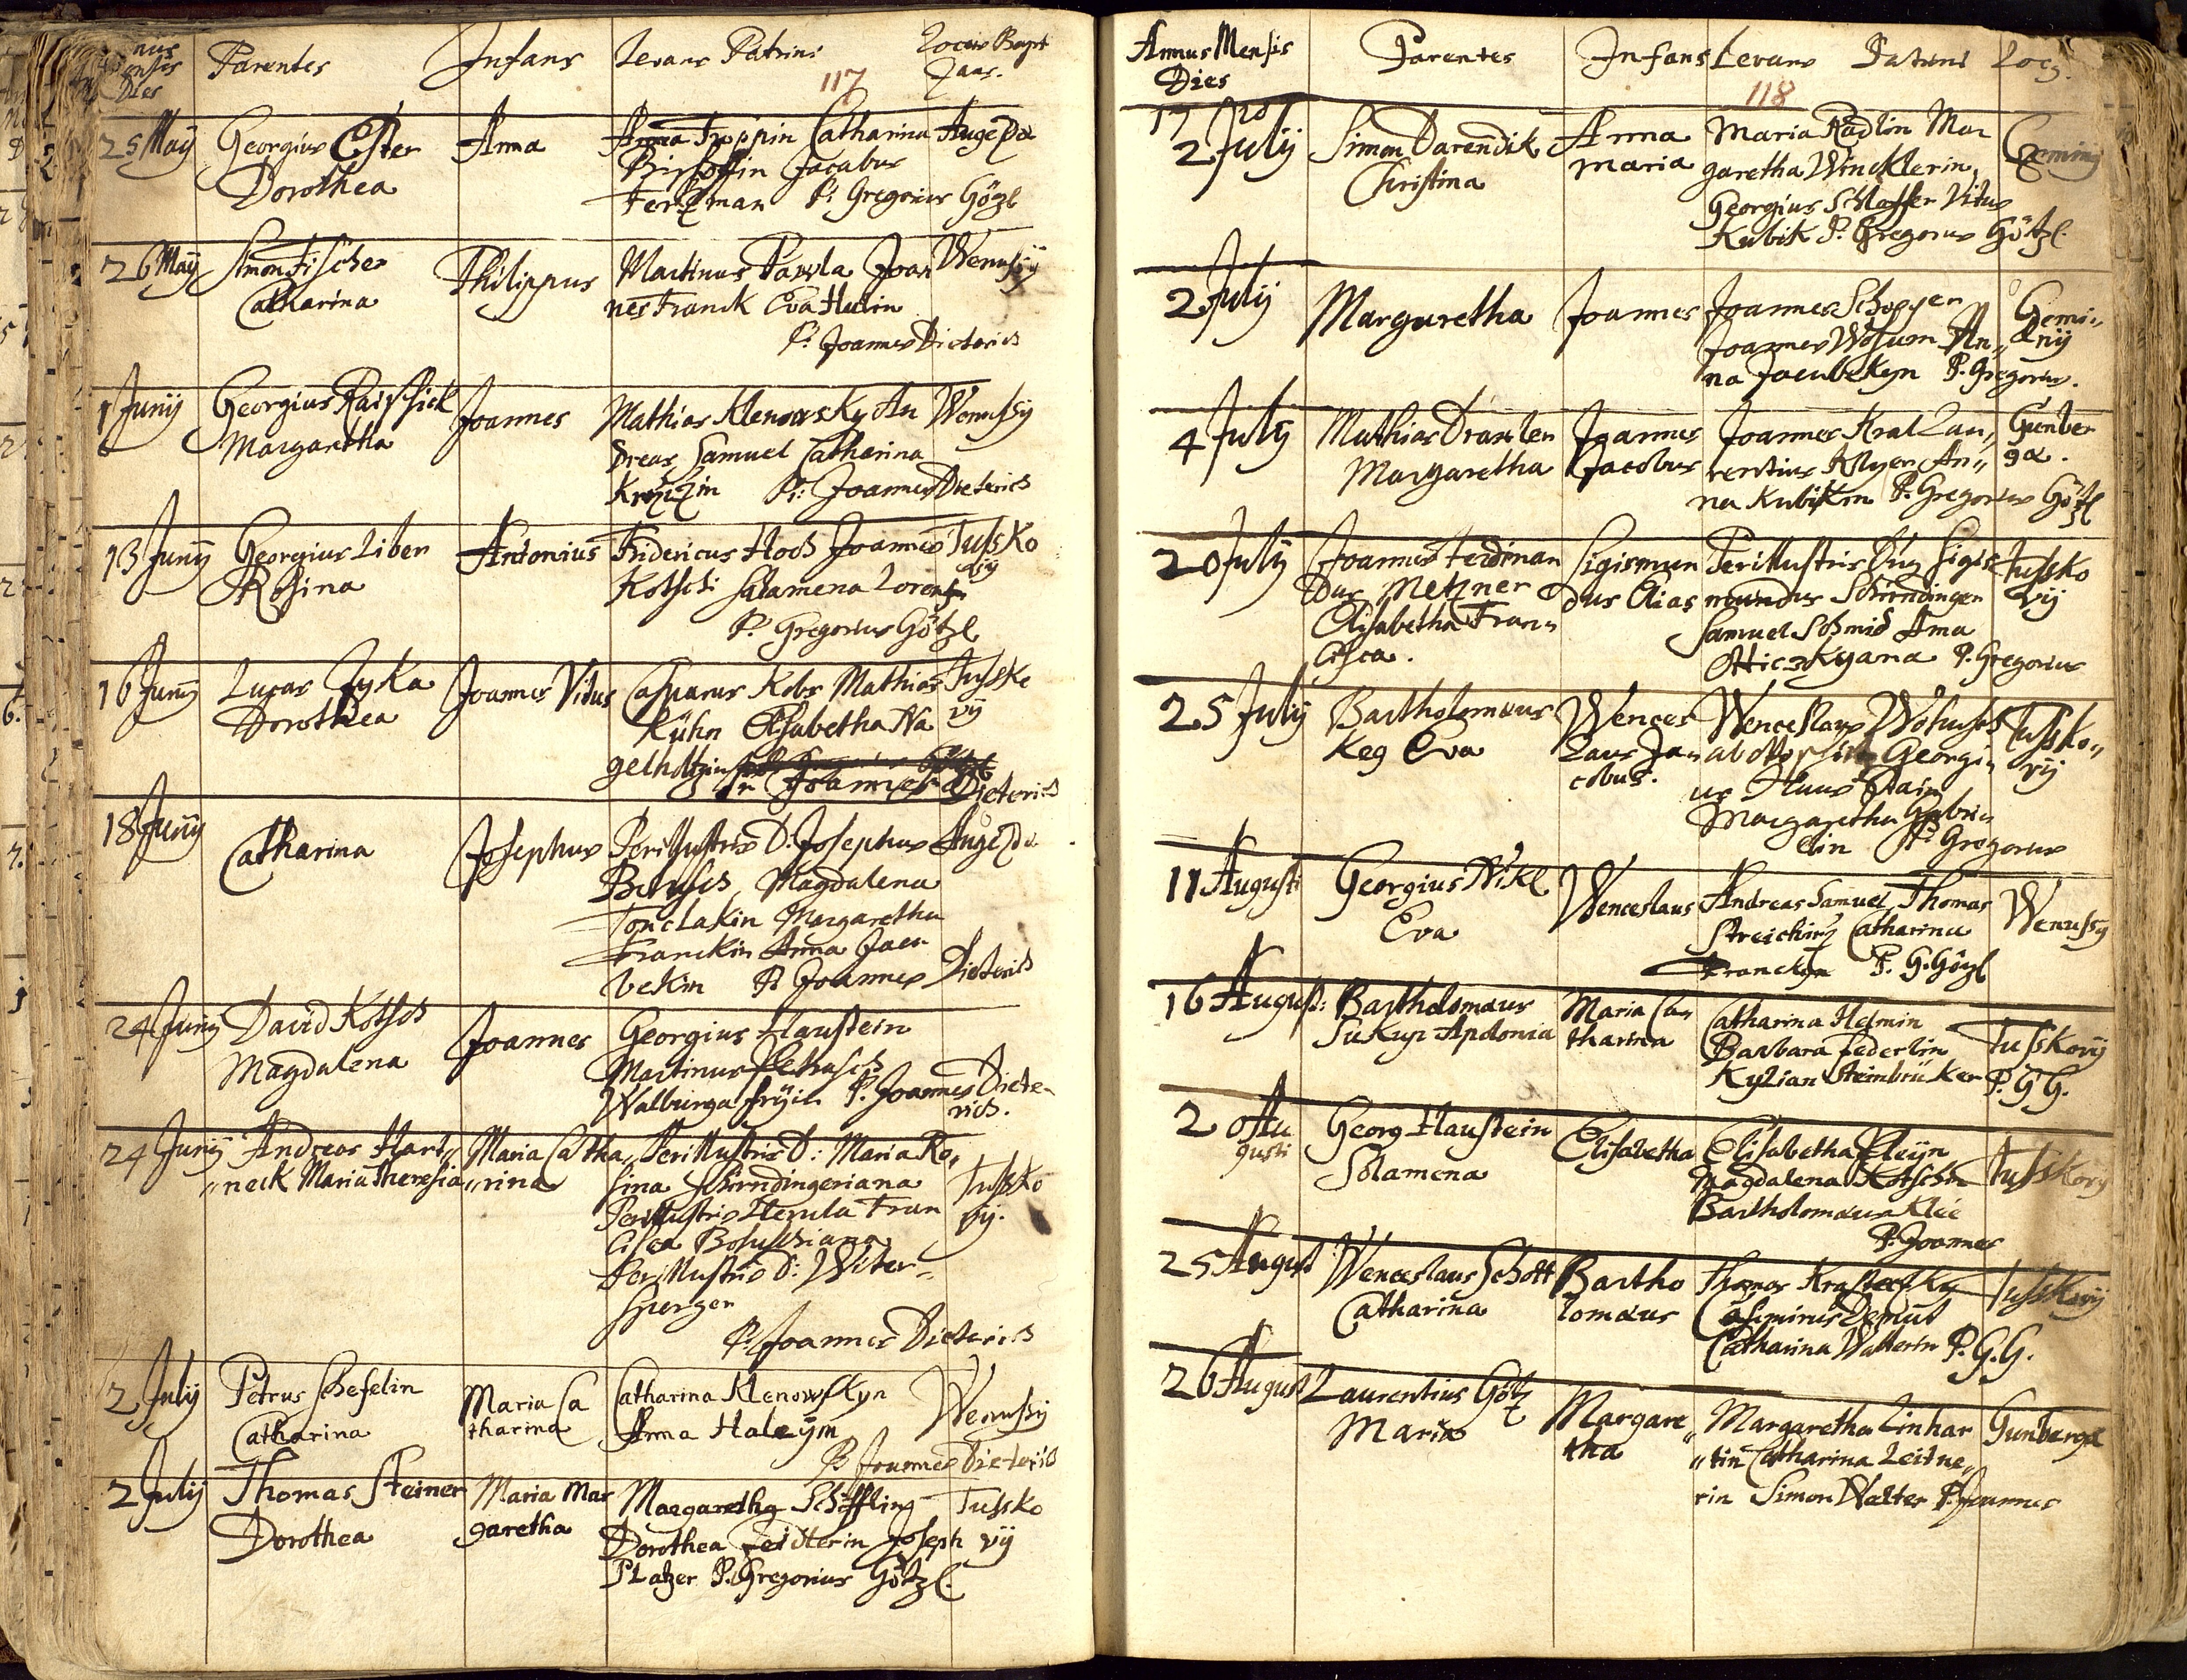 nus
Mensis
Dies
Parentes
Infans
Levans Patrini
Locus Bapt
117
25 Maÿ
Georgius
Dorothea
Anna
Anna Troppin Catharina
Augezda
Bischoffin Jacobus
Ferzman P: Gregorius Gözl
26 Maÿ
Simon Fischer
Catharina
Philippus
Martinus Pawla Joan
nes Franck Eva Hulin
P: Joannes Dieterich
Wenussÿ
1 Junij
Georgius
Margaretha
Joannes
Mathias Klenowsky An
dreas Samuel Catharina
P: Joannes Dieterich
Wenussÿ
13 Junij
Georgius Liben
Rosina
Antonius
Fridericus Hoch Joannes
Kotsch Salamena Lorentzin
P: Gregorius Götzl
Tussko
vij
16 Junij
Lucas Zyka
Dorothea
Joannes Vitus
Casparus Kobs Mathias
Kühn Elisabetha Na
gelholtzin
P: Joannes Dieterich
Tussko
vij
18 Junij
Catharina
Josephus
Perillustris D. Josephus
Magdalena
Tonclakin Margaretha
Franckin Anna Jacu
bekin P: Joannes Dieterich
Augezda
24 Junij
David Kotsch
Magdalena
Joannes
Georgius Haustein
Martinus
Walburga P. Joannes Diete
rich.
24 Junij
Andreas Hart„
„neck Maria Theresia
Maria Catha„
„rina
Perillustris D: Maria Ro„
sina Schirndingeriana
Perillustris Herula Fran
cisca
Perillustris D: Witer„
sperger
P: Joannes Dieterich
Tussko
vij.
2 Julij
Petrus Schefelin
Catharina
Maria Ca
tharina
Catharina Klenowskyn
Anna Haleÿin
P Joannes Dieterich
Wenussÿ
2 Julij
Thomas Steiner
Dorothea
Maria Mar
garetha
Margaretha Schiffling
Dorothea Feidterin Joseph
Platzer P. Gregorius Götzl.
Tussko
vij
Annus Mensis
Dies
Parentes
Infans
Levans Patrini
Locus
118
17 20
2 Julij
Simon Darendik
Christina
Anna
Maria
Maria Radlin Mar
garetha Wincklerin
Georgius Schlosser Vitus
Kubik P. Gregorius Götzl
2 Julij
Margaretha
Joannes
Joannes Schopper
Joannes An„
na Jacubekyn P. Gregorius.
4 Julij
Mathias Draxler
Margaretha
Joannes
Jacobus
Joannes Kral Lau„
rentius An„
na Kubikin P. Gregorius Götzl
Gunber
gæ.
20 Julij
Joannes Ferdinan
dus Metzner
Elisabetha Fran„
cisca.
Sigismun
dus Elias
Perillustris Dnus Sigis
mundus Schirndinger
Samuel Schmid Anna
P. Gregorius
Tussko
vij
25 Julij
Bartholomæus
Keg Eva
Wences
Laus Ja„
cobus.
Wenceslaus
Georgi„
us
Margaretha Gabri„
elin P: Gregorius
Tussko„
vij
11 Augusti
Georgius Nikl
Eva
Wenceslaus
Andreas Samuel Thomas
Catharina
Franckyn P. G. Gözl
Wenussÿ
16 August:
Bartholomæus
Sukup Apolonia
Maria Ca„
tharina
Catharina Helmin
Barbara Federlin
Kylian Steinbrüker P. G G.
Tusskovij
20 Au
gusti
Georg Haustein
Solamena
Elisabetha
Elisabetha Kleÿn
Magdalena Kotschin
Bartholomæus Klie
P. Joannes
Tusskovij
25 August
Wenceslaus Schott
Catharina
Bartho
lomæus
Thomas
Casimirus Demut
Catharina Walterin P. G. G.
Tusskovij
26 August
Laurentius Götz
Maria
Margare„
tha
Margaretha Linhar
„tin Catharina Leitne„
rin Simon Walter P. Joannes
Gunbergæ